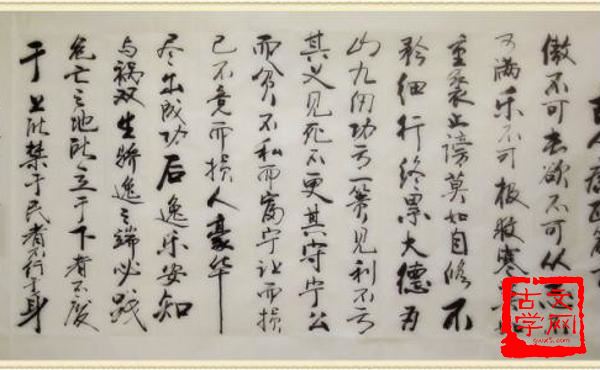 古人
傲不可长欲不可从志不
可满乐不可极救寒莫如
重裘止谤莫如自修不
矜细行终累大德为
山九仞功亏一篑见利不亏
其义见死不更其守宁公
而贫不私而富宁让而损
己不竞而损人豪华
尽出成功后逸乐安知
与祸双生骄逸之端必践
危亡之地所立于下者不废
于上所禁于民者不行于身
古文
学网